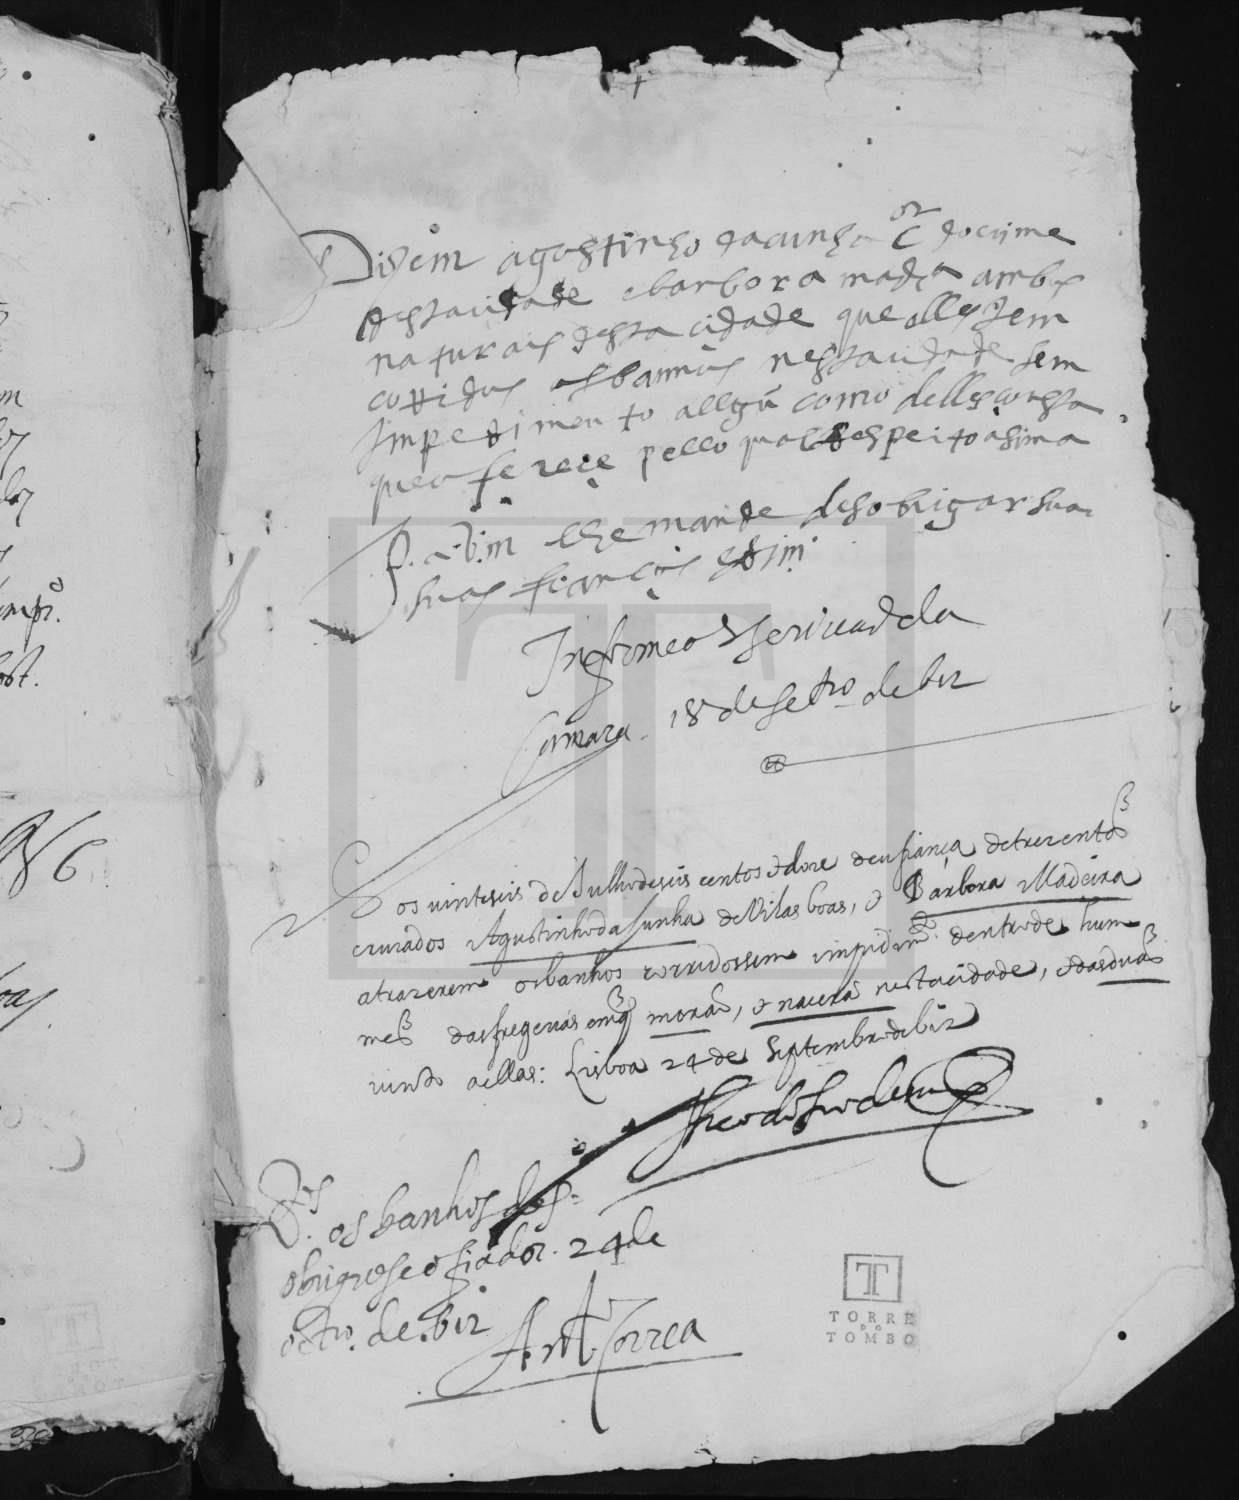 Dizem agostinho dacunha c.or do crime
destacidade e barbora madr.a ambos
naturais desta cidade que elles tem
corridos os bannos nestacidade sem
Impedimento allgũ como delles consta
que oferece pello qual Respeito asima
P. a. v. m. lhe mande desobrigar sua
suas fianças
Informe o
Camara 18 de setro de 612
Aos vinteseis de Julho de seis centos e doze deu fiança de trezentos
cruzados Agostinho da Cunha de Vilas boas, e Barbora Madeira
a trazerem os banhos corridos sem impidim.to dentro de hum
mes das freguezias em q morão, e nacerão nesta cidade, e das duas
vindo a ellas: Lisboa 24 de Septembro de 612
os banhos
o fiador. 24 de
octro. de .612
Ant. Correa
TORRE
DO
TOMBO